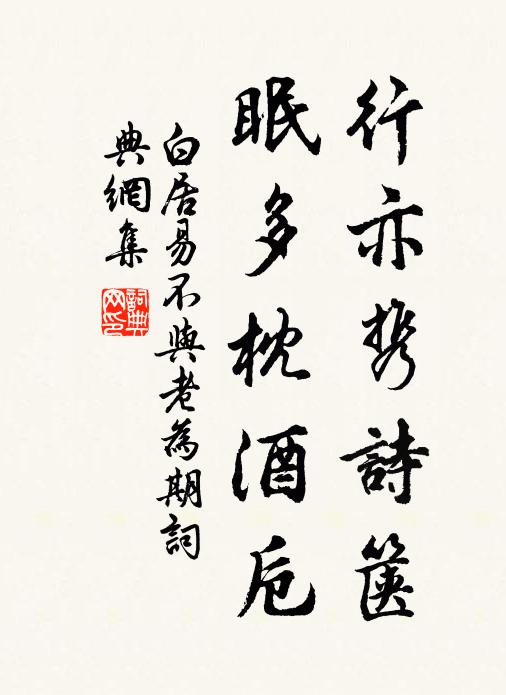 行亦攜詩篋
眠多枕酒卮
白居易不與老為期詞
典網集
詞典
网印